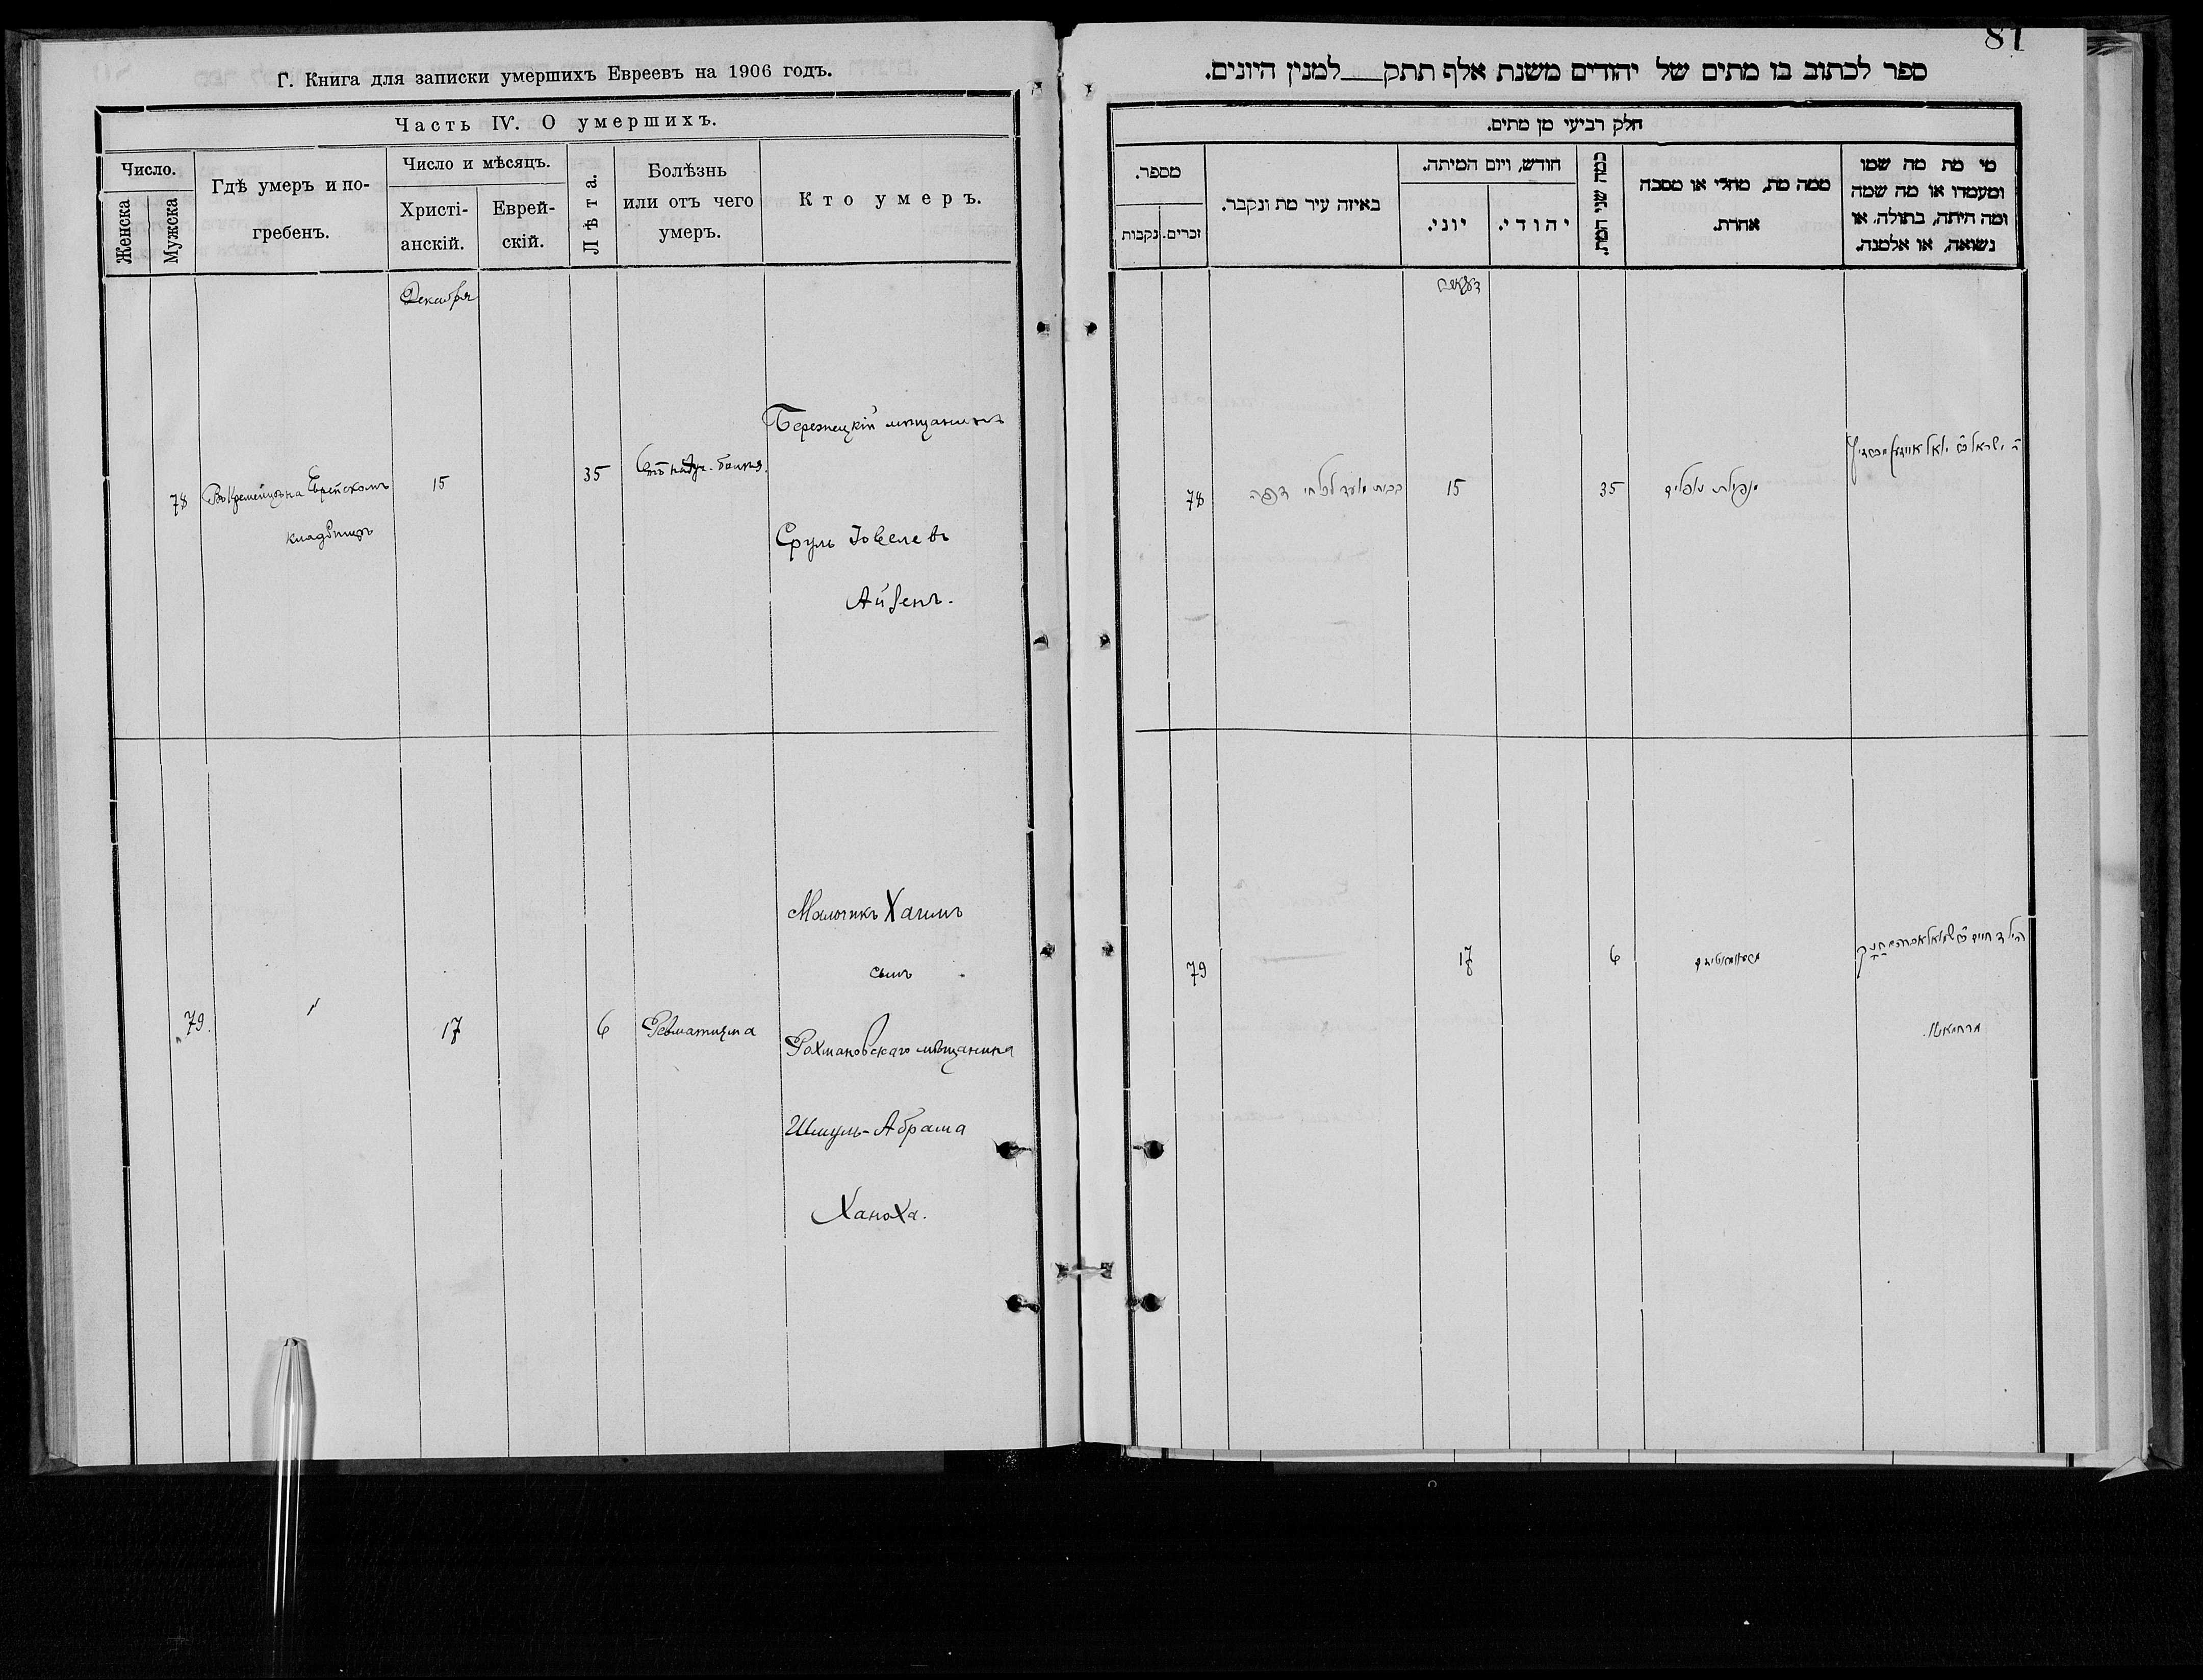 Г. Книга для записки умершихъ Евреевъ на 1906 годъ.
Часть IV. О умершихъ.
Число.
Женска
Мужска
Гдѣ умеръ и по-
гребенъ.
Число и мѣсяцъ.
Христі-
анскій.
Еврей-
скій.
Лѣта.
Болѣзнь
или отъ чего
умеръ.
Кто умеръ.
Декабря
78
Въ Кременцѣ на Еврейскомъ
кладбищѣ
15
35
Бережецкій мѣщанинъ
Сруль Іовелевъ
Айзенъ.
79.
"
17
6
Ревматизма
Мальчикъ Хаимъ
сынъ
Рахмановскаго мѣщанина
Шмуль-Абрама
Ханоха.
81
ספר לכתוב בו מתים של יהודים משנת אלף תתק למנין היונים.
חלק רביעי מן מתים.
מספר.
נקבות
זכרים.
באיזה עיר מת ונקבר.
חודש, ויום המיתה.
יוני.
יהודי.
כמה שני המת.
ממה מת, מחלי או מסבה
אחרת.
מי מת מה שמו
ומעמדו או מה שמה
ומה היתה, בתולה, או
נשואה, או אלמנה.
78
15
35
79
17
6